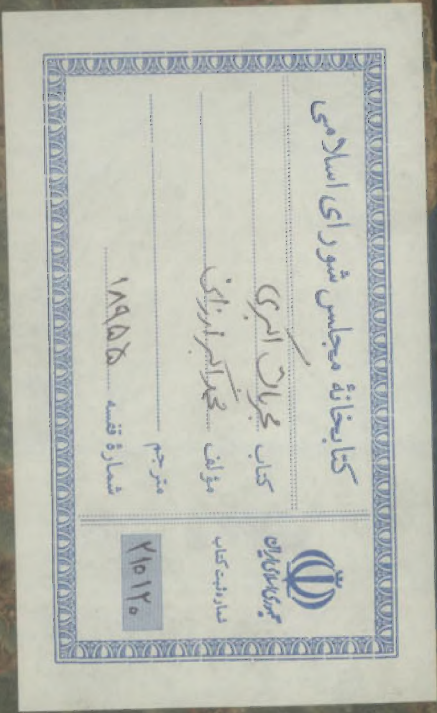 کتابخانهٔ مجلس شورای اسلامی
کتاب مجربات اکبری
مؤلف محمد اکبر ارزانی
مترجم
شمارهٔ قفسه ۱۸۹۵۵
جمهوری اسلامی ایران
شماره ثبت کتاب
۲۱۵۱۲۰